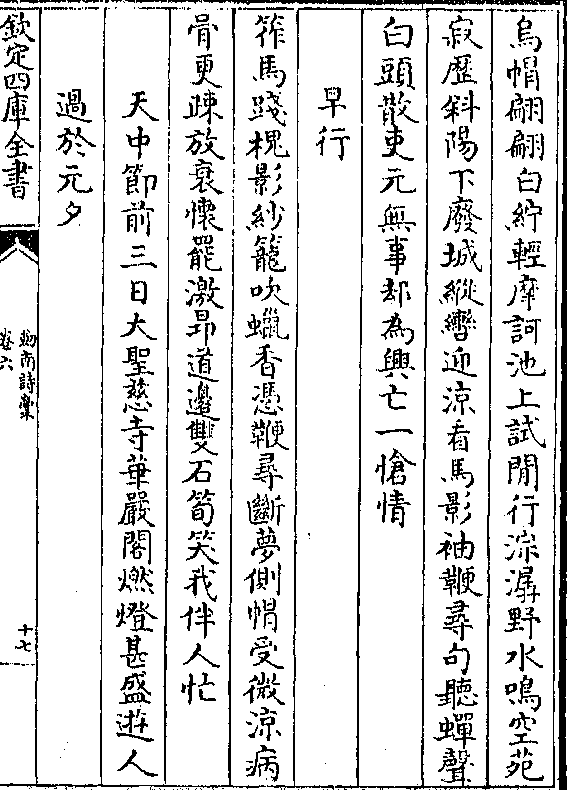 烏帽翩翩白紵輕摩訶池上試閒行淙潺野水鳴空苑
寂歴斜陽下廢城縱轡迎涼看馬影袖鞭尋句聽蟬聲
白頭散吏元無事却為興亡一愴情
早行
筰馬踐槐影紗籠吹蠟香憑鞭尋斷夢側帽受微涼病
骨更疎放衰懷罷激昂道邊雙石筍笑我伴人忙
天中節前三日大聖慈寺華嚴閣燃燈甚盛遊人
過於元夕
欽定四庫全書
劍南詩藁
卷六
十七